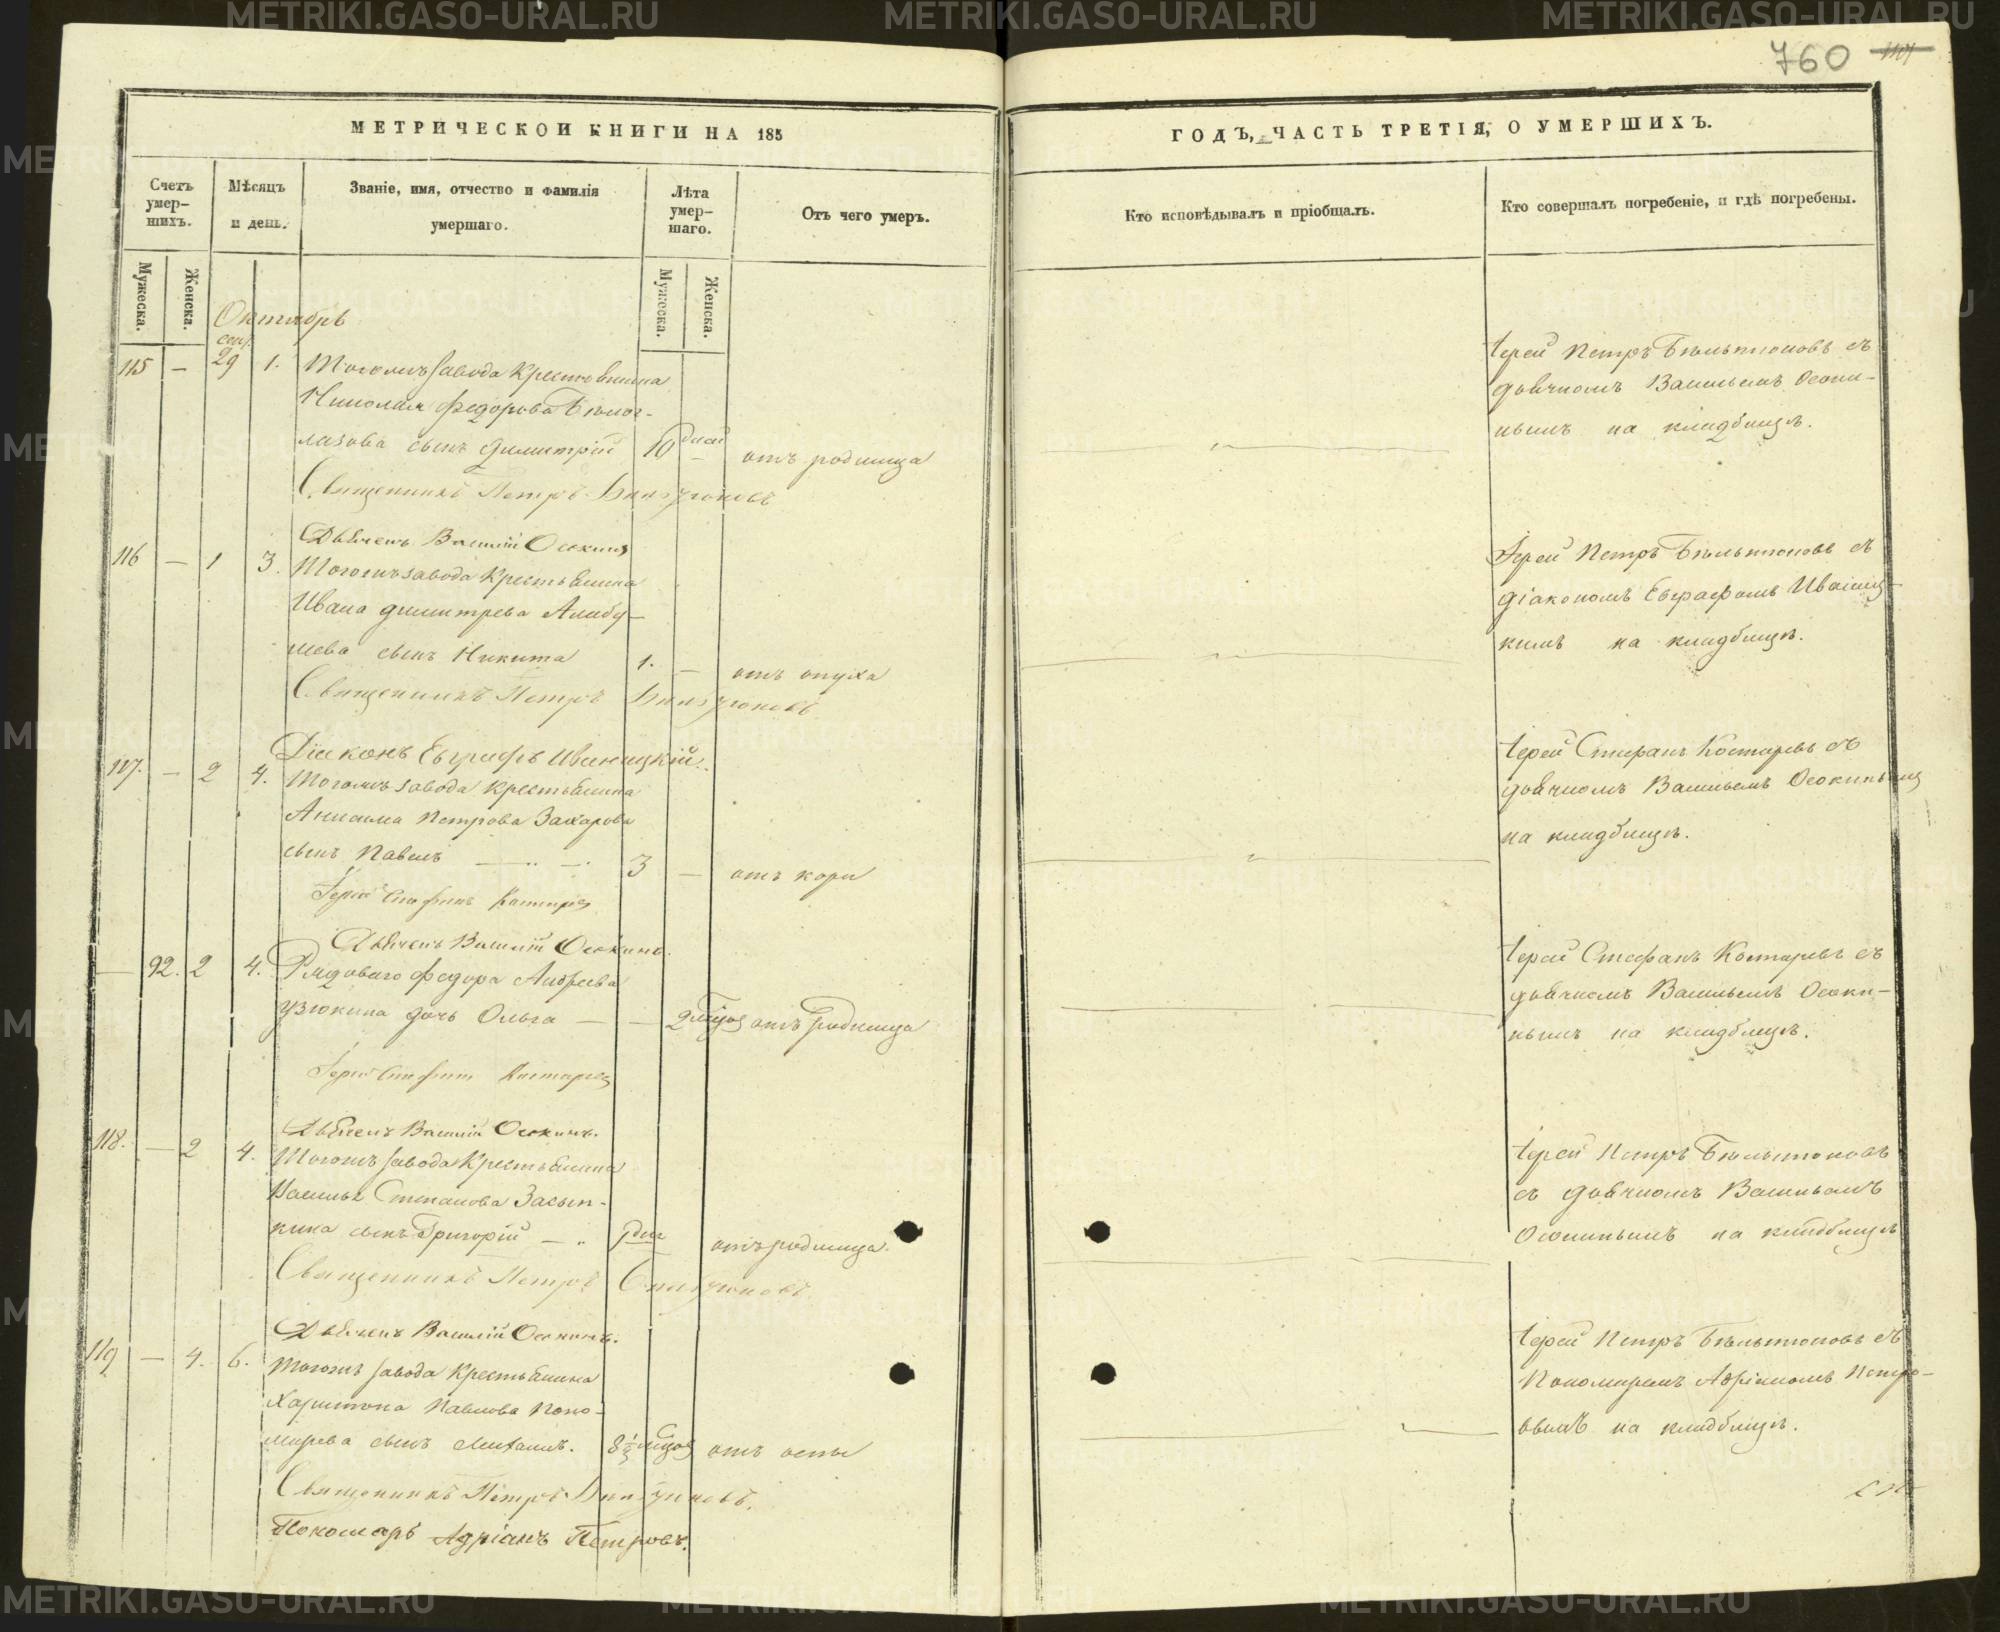 760
МЕТРИЧЕСКОЙ КНИГИ НА 185
ГОДЪ, ЧАСТЬ ТРЕТІЯ, О УМЕРШИХЪ.
Счетъ умер-
шихъ.
Мѣсяцъ
и день.
Званіе, имя, отчество и фамилія
умершаго.
Лѣта
умер-
шаго.
Отъ чего умеръ.
Кто исповѣдывалъ и пріобщалъ.
Кто совершалъ погребеніе, и гдѣ погребены.
Мужеска.
Женска.
Мужеска.
Женска.
Октябрь
сен.
115 — 29 1. Тогожъ завода крестьянина
Николая Федорова Бѣлог-
лазова сынъ Димитрій 10 дней — отъ родимца
Іерей Петръ Бѣльтюковъ съ
дьячкомъ Васильемъ Осоки-
нымъ на кладбищѣ.
Священникъ Петръ
Дьячекъ Василій Осокинъ
116 — 1 3. Тогожъ завода крестьянина
Ивана Димитрева Алабу-
шева сынъ Никита 1. — отъ опуха
Іерей Петръ Бѣльтюковъ съ
діакономъ Евграфомъ Иваниц-
кимъ на кладбищѣ.
Священникъ Петръ
Діаконъ Евграфъ Иваницкій.
117. — 2 4. Тогожъ завода крестьянина
Анисима Петрова Захарова
сынъ Павелъ 3 — отъ кори
Іерей Стефанъ Костаревъ съ
дьячкомъ Васильемъ Осокинымъ
на кладбищѣ.
Іерей Стефанъ Костаревъ
Дьячекъ Василій Осокинъ.
— 92. 2 4. Рядоваго Федора Андреева
Узюкина дочь Ольга — — 2 мѣсяц отъ родимца
Іерей Стефанъ Костаревъ съ
дьячкомъ Васильемъ Осоки-
нымъ на кладбищѣ.
Іерей Стефанъ Костаревъ
Дьячекъ Василій Осокинъ.
118. — 2 4. Тогожъ завода крестьянина
Василья Степанова Засып-
кина сынъ Григорій — отъ родимца.
Іерей Петръ Бѣльтюковъ
съ дьячкомъ Васильемъ
Осокинымъ на кладбищѣ
Священникъ Петръ
Дьячекъ Василій Осокинъ.
119 — 4. 6. Тогожъ завода крестьянина
Харитона Павлова Поно-
марева сынъ 8½ мѣсяц отъ оспы
Іерей Петръ Бѣльтюковъ съ
Пономаремъ Адріаномъ Петро-
вымъ на кладбищѣ.
Священникъ Петръ
Пономарь Адріанъ Петровъ.